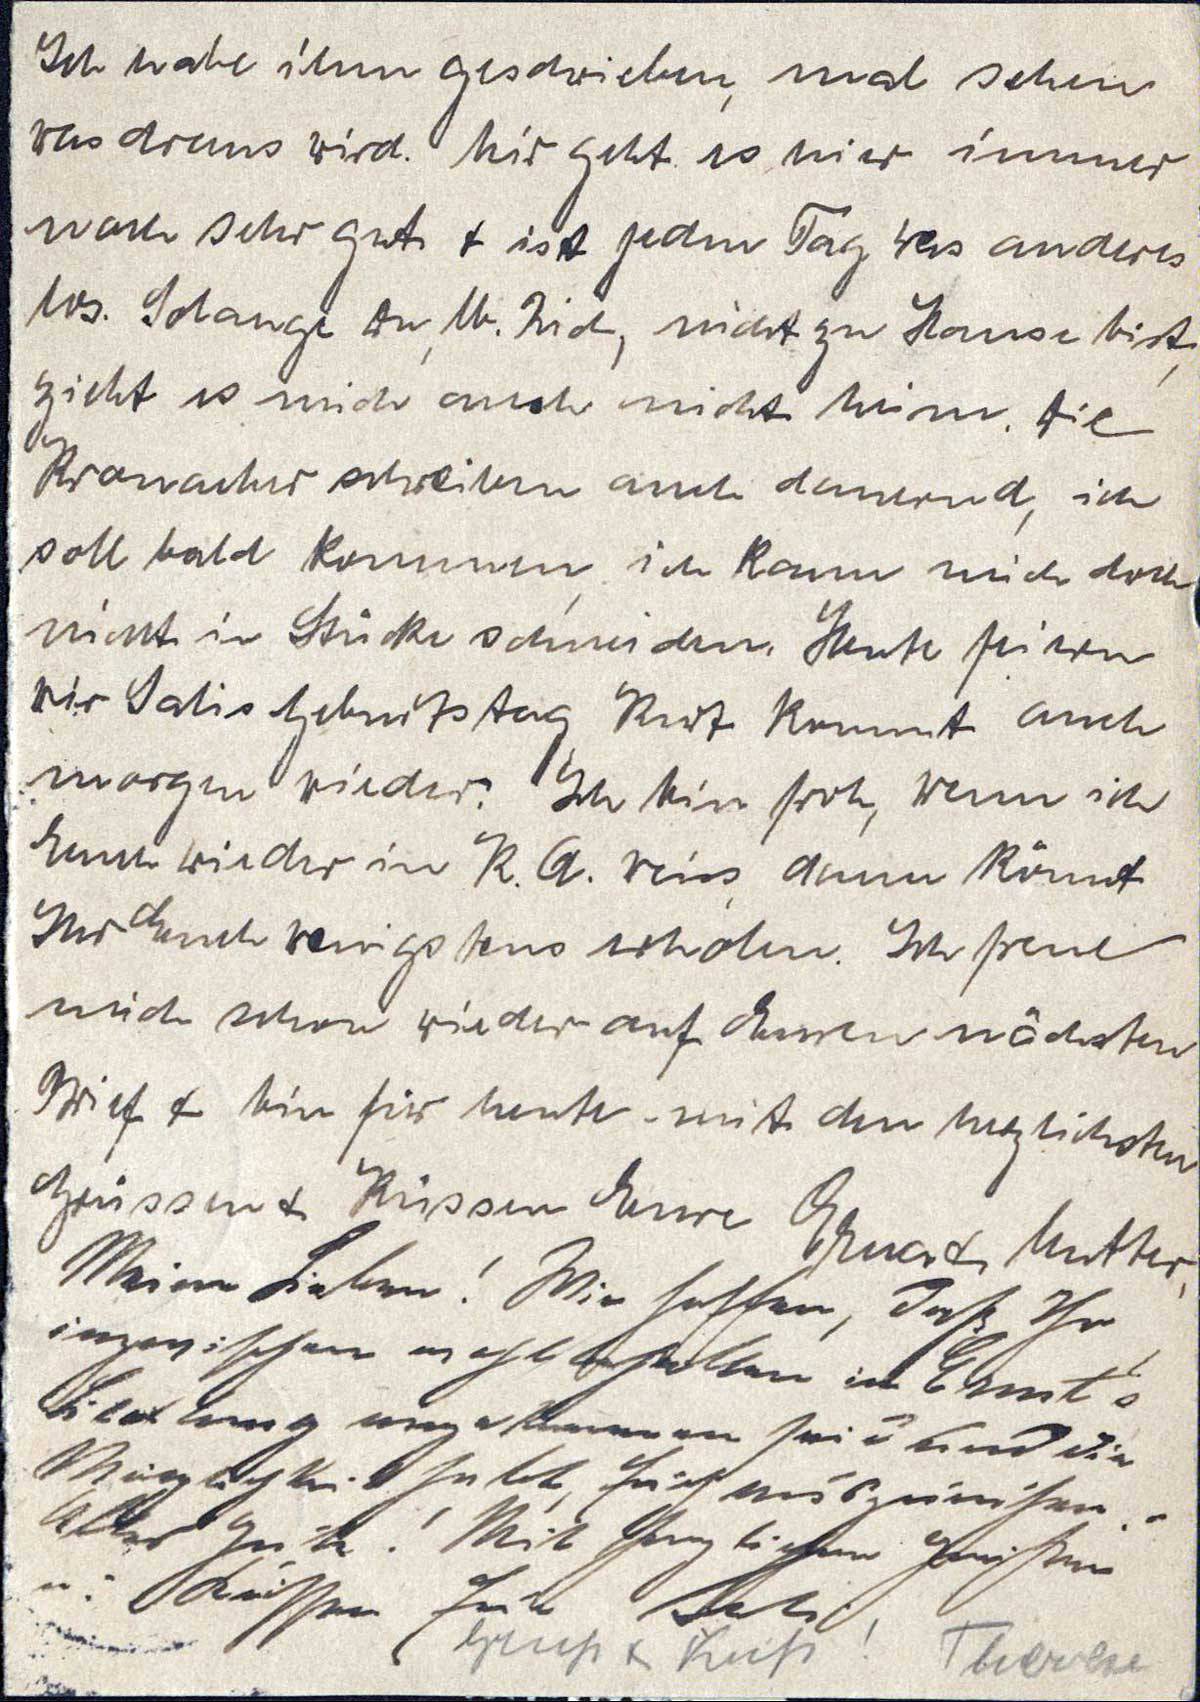 Ich habe ihm geschrieben, mal sehen
was draus wird. Mir geht es hier immer
noch sehr gut & ist jeden Tag was anderes
los. Solange Du, lb. , nicht zu Hause bist,
zieht es mich auch nicht heim. Die
Kronacher schreiben auch dauernd, ich
soll bald kommen, ich kann mich doch
nicht in Stücke schneiden. Heute feiern
wir Salis Geburtstag, Kurt kommt auch
morgen wieder. Ich bin froh, wenn ich
Euch wieder in K. A. weiss, dann könnt
Ihr Euch wenigstens erholen. Ich freue
mich schon wieder auf Euren nächsten
Brief & bin für heute mit den herzlichsten
Grüssen & Küssen Eure Mutter.
Meine Lieben! Wir hoffen, daß Ihr
inzwischen wohlbehalten in Ernst's
angekommen seid und die
Möglichkeit habt, Euch auszuruhen. -
Alles Gute! Mit herzlichen Grüßen
u. Küssen Eure Sali
Gruß & Kuß! Therese